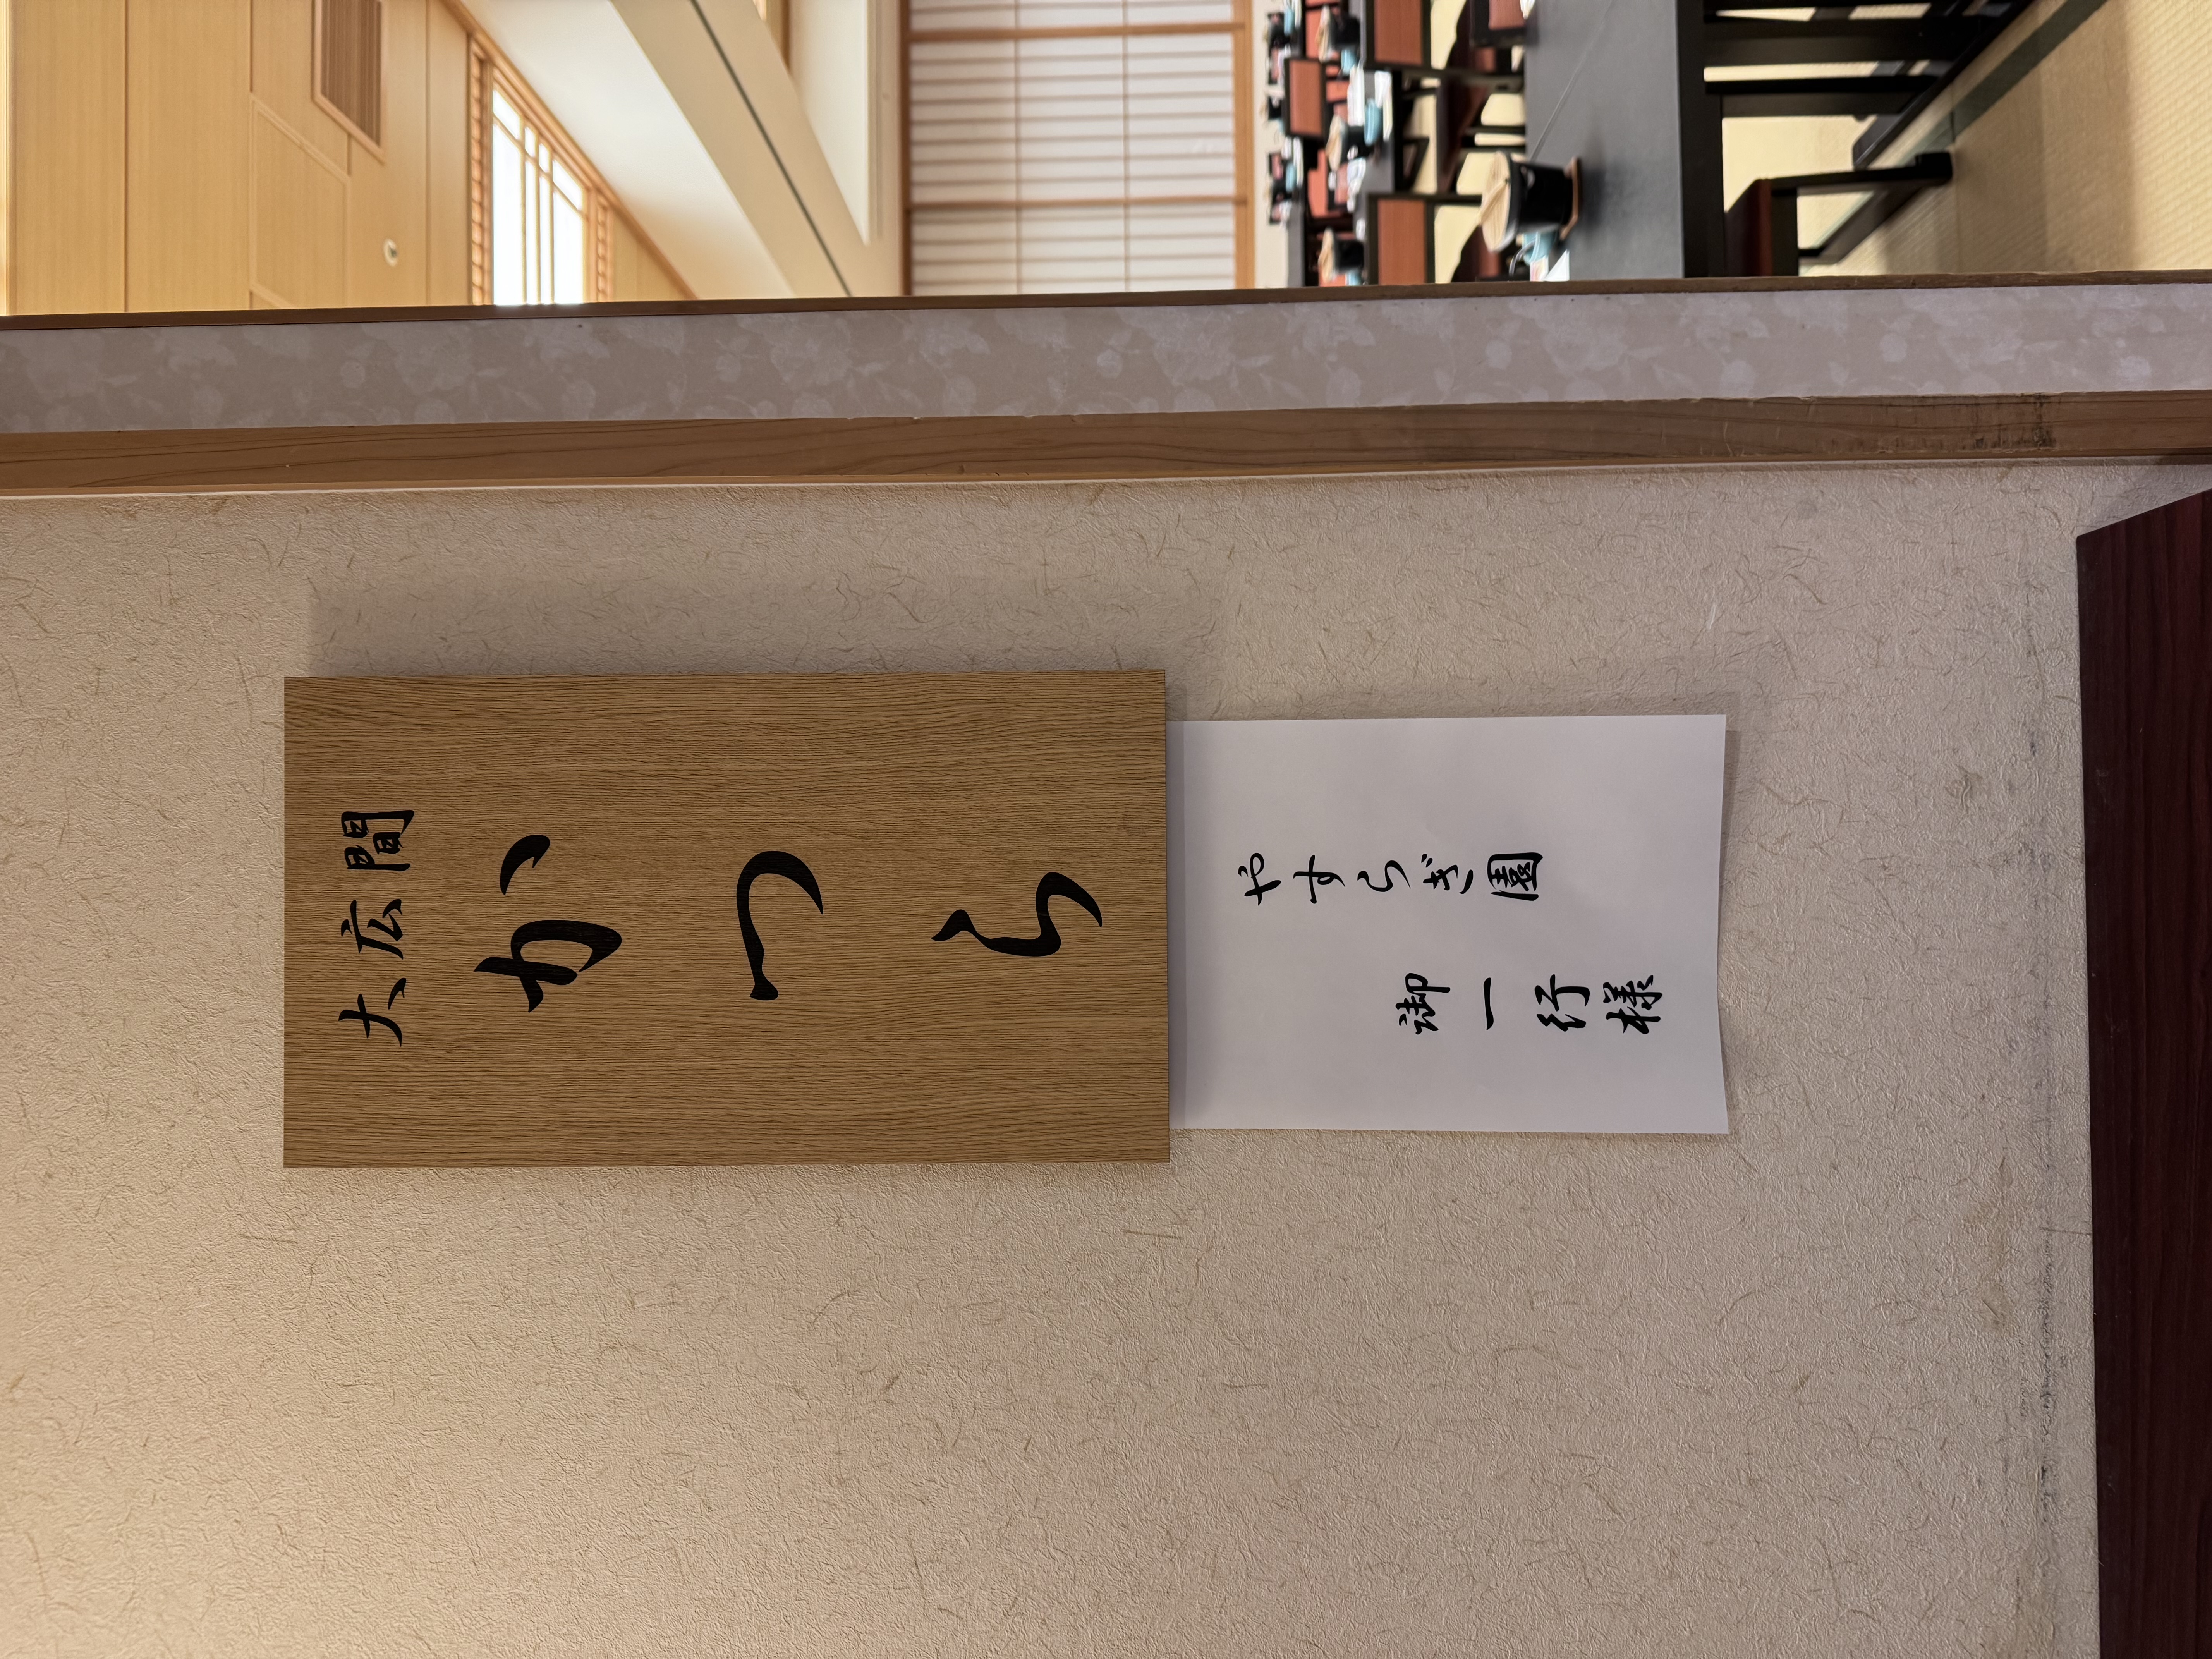 大広間
かつら
やすらぎ園
御一行様